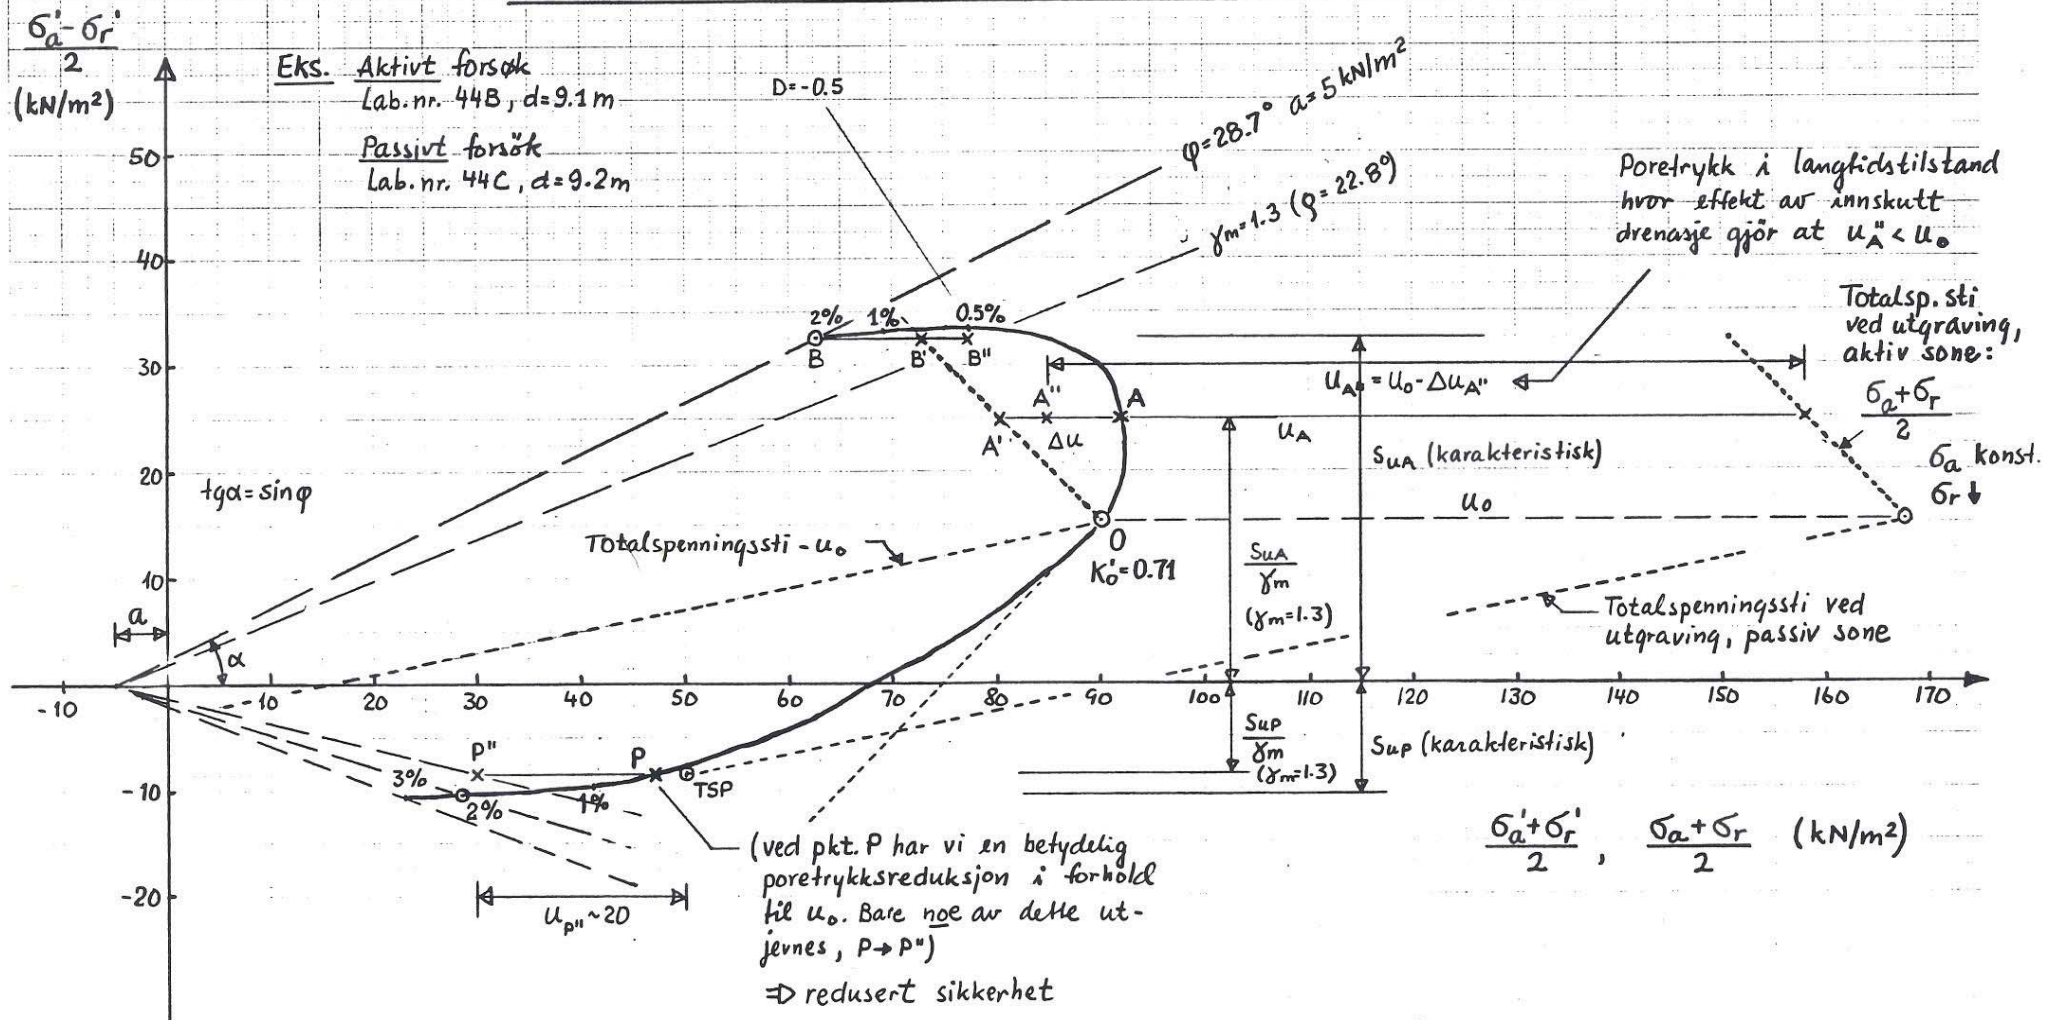 σa'-σr'
2
(kN/m²)
Eks. Aktivt forsøk
Lab.nr. 44B, d=9.1m
Passivt forsök
Lab.nr. 44C, d=9.2m
D=-0.5
φ=28.7° a=5 kN/m²
γm=1.3 (ρ=22.8°)
Poretrykk i langtidstilstand
hvor effekt av innskutt
drenasje gjör at uA" < uo
Totalsp. sti
ved utgraving,
aktiv sone:
σa+σr
2
σa konst.
σr ↓
50
40
30
20
10
-10
-20
2% 1% 0.5%
B B' B"
A" A
A' Δu
uA" = uo-ΔuA"
uA
SuA (karakteristisk)
uo
tgα=sinφ
Totalspenningssti - uo
O
Ko'=0.71
SuA
γm
(γm=1.3)
Totalspenningssti ved
utgraving, passiv sone
a
α
-10 10 20 30 40 50 60 70 80 90 100 110 120 130 140 150 160 170
P" P
3%
2%
1%
TSP
Sup
γm
(γm=1.3)
Sup (karakteristisk)
σa'+σr'
2
, σa+σr
2
(kN/m²)
uP"~20
(ved pkt. P har vi en betydelig
poretrykksreduksjon i forhold
til uo. Bare noe av dette ut-
jevnes, P→P")
⇒ redusert sikkerhet